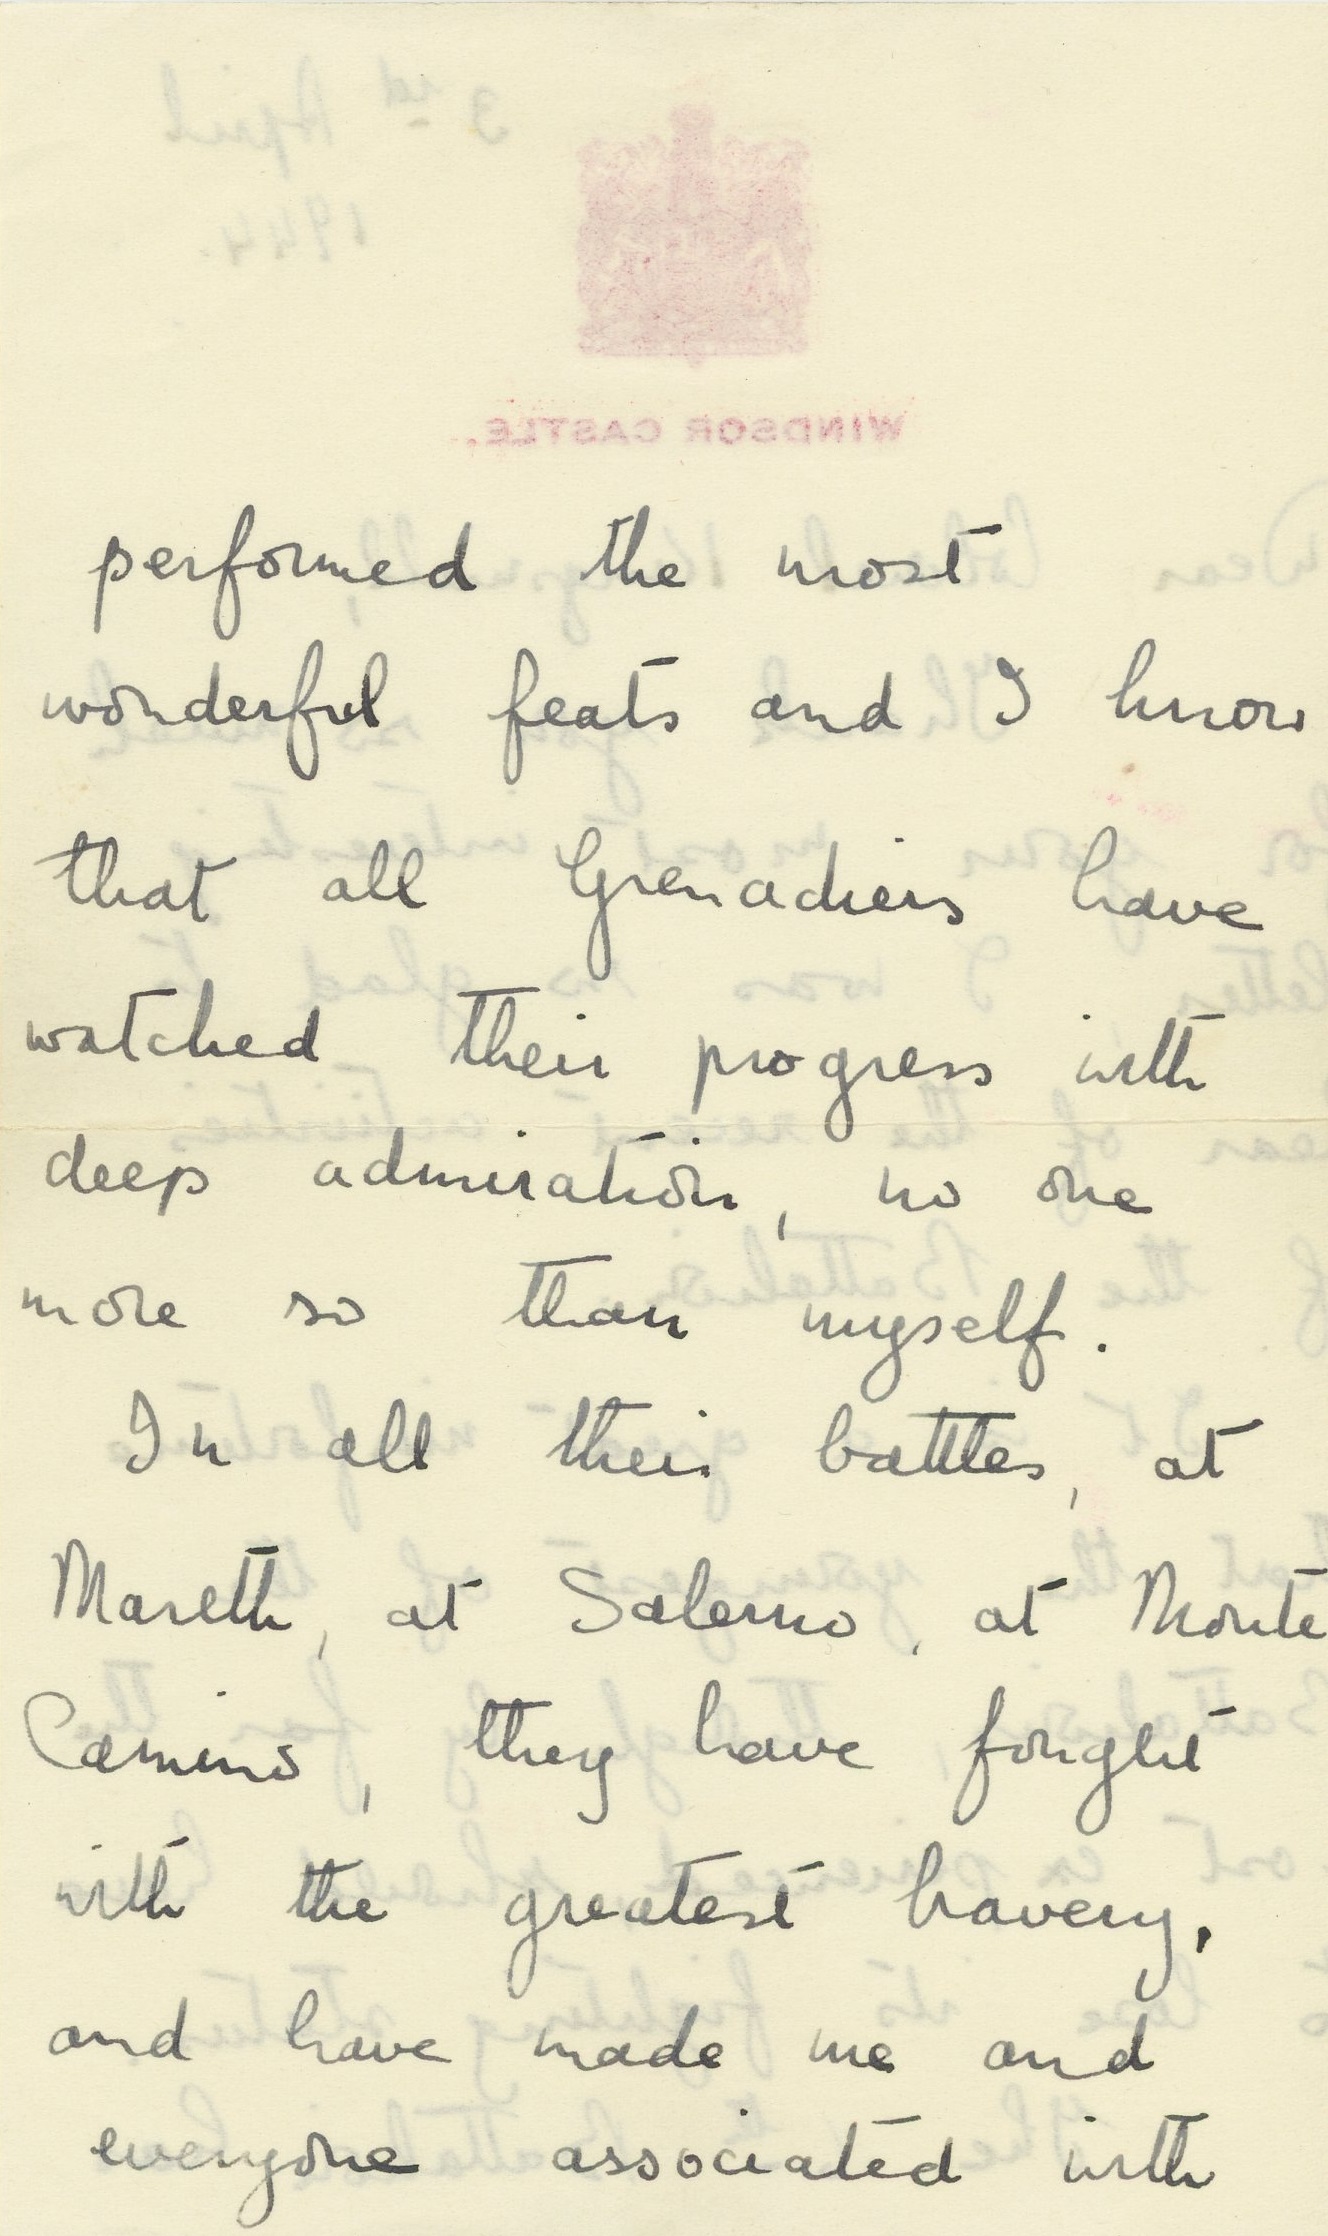 3rd April
1944.
WINDSOR CASTLE.
performed the most
wonderful feats and I know
that all Grenadiers have
watched their progress with
deep admiration, no one
more so than myself.
In all their battles, at
Mareth, at Salerno, at Monte
Camino, they have fought
with the greatest bravery,
and have made me and
everyone associated with